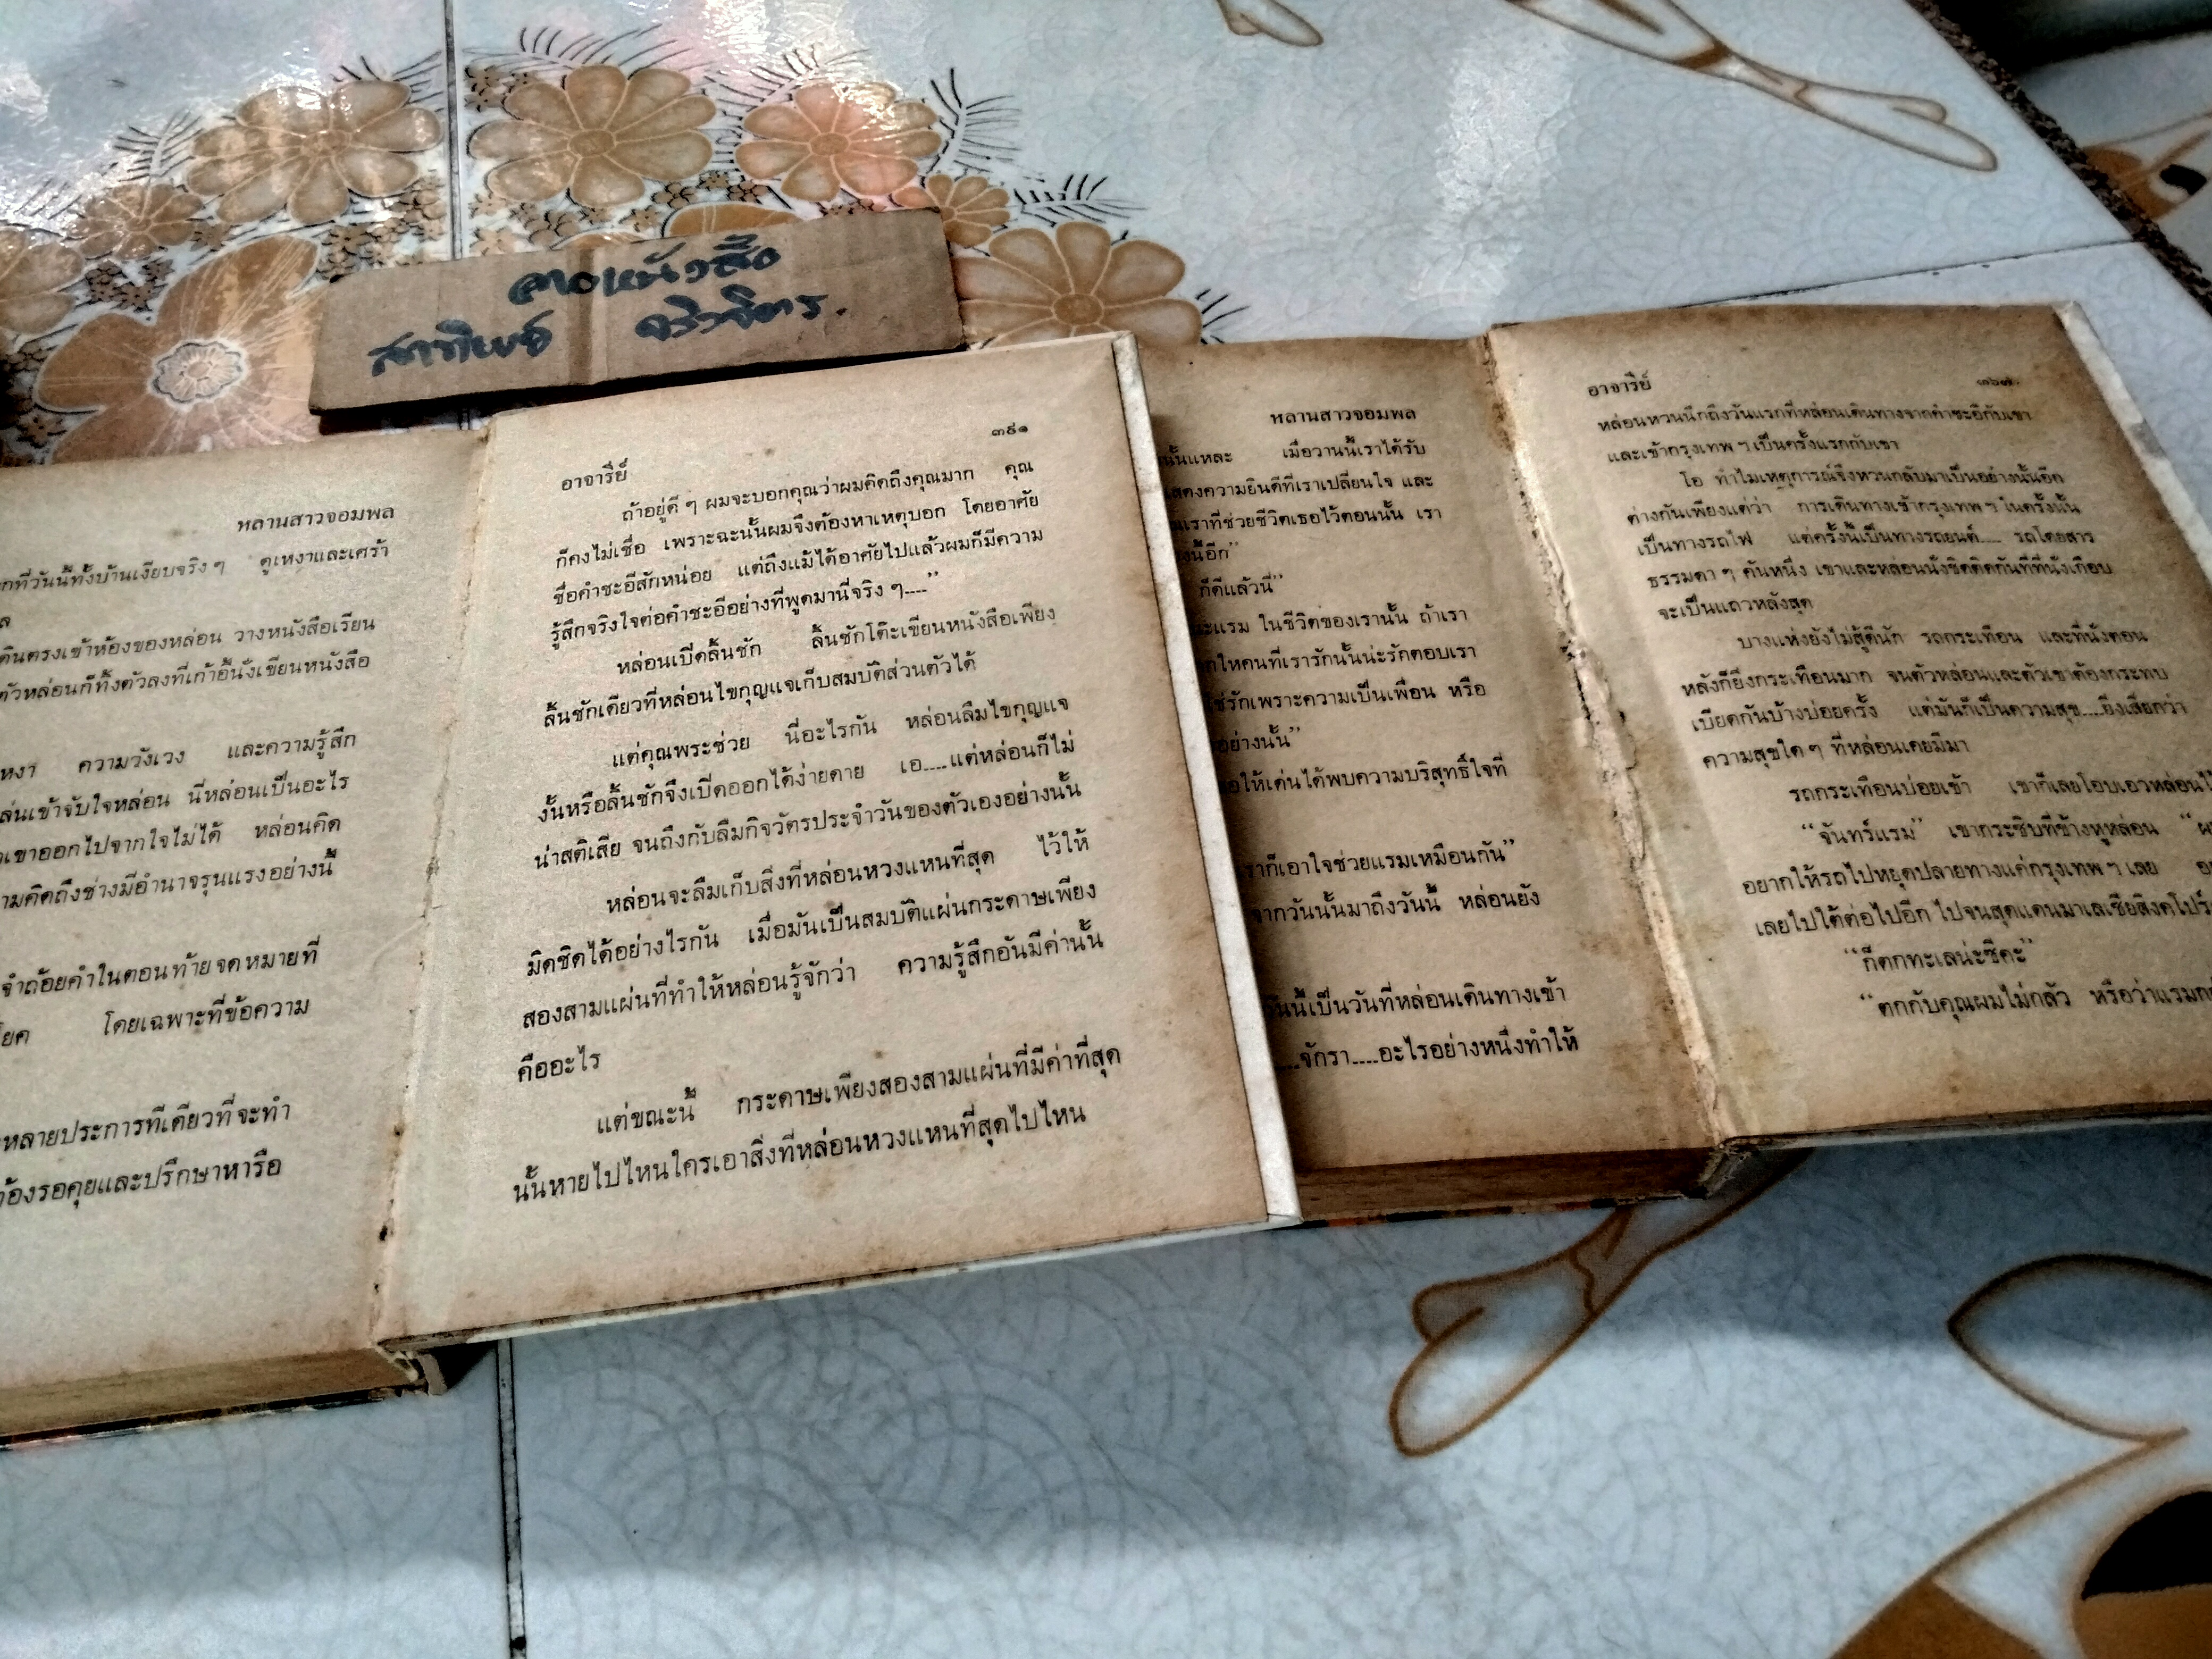 ลาดหนังสือ
สุภาทิพย์ จริวจิตร.
หลานสาวจอมพล
กที่วันนี้ทั้งบ้านเงียบจริง ๆ ดูเหงาและเศร้า
ล
ดินตรงเข้าห้องของหล่อน วางหนังสือเรียน
ตัวหล่อนก็ทิ้งตัวลงที่เก้าอี้นั่งเขียนหนังสือ
หงา ความวังเวง และความรู้สึก
ล่นเข้าจับใจหล่อน นี่หล่อนเป็นอะไร
เขาออกไปจากใจไม่ได้ หล่อนคิด
ามคิดถึงช่างมีอำนาจรุนแรงอย่างนี้
จำถ้อยคำในตอนท้ายจดหมายที่
โยค โดยเฉพาะที่ข้อความ
หลายประการทีเดียวที่จะทำ
้องรอคุยและปรึกษาหารือ
อาจารีย์ ๓๕๑
ถ้าอยู่ดี ๆ ผมจะบอกคุณว่าผมคิดถึงคุณมาก คุณ
ก็คงไม่เชื่อ เพราะฉะนั้นผมจึงต้องหาเหตุบอก โดยอาศัย
ชื่อคำชะอีสักหน่อย แต่ถึงแม้ได้อาศัยไปแล้วผมก็มีความ
รู้สึกจริงใจต่อคำชะอีอย่างที่พูดมานี่จริง ๆ....”
หล่อนเปิดลิ้นชัก ลิ้นชักโต๊ะเขียนหนังสือเพียง
ลิ้นชักเดียวที่หล่อนไขกุญแจเก็บสมบัติส่วนตัวได้
แต่คุณพระช่วย นี่อะไรกัน หล่อนลืมไขกุญแจ
งั้นหรือลิ้นชักจึงเปิดออกได้ง่ายดาย เอ....แต่หล่อนก็ไม่
น่าสติเสีย จนถึงกับลืมกิจวัตรประจำวันของตัวเองอย่างนั้น
หล่อนจะลืมเก็บสิ่งที่หล่อนหวงแหนที่สุด ไว้ให้
มิดชิดได้อย่างไรกัน เมื่อมันเป็นสมบัติแผ่นกระดาษเพียง
สองสามแผ่นที่ทำให้หล่อนรู้จักว่า ความรู้สึกอันมีค่านั้น
คืออะไร
แต่ขณะนี้ กระดาษเพียงสองสามแผ่นที่มีค่าที่สุด
นั้นหายไปไหนใครเอาสิ่งที่หล่อนหวงแหนที่สุดไปไหน
หลานสาวจอมพล
นั้นแหละ เมื่อวานนี้เราได้รับ
สดงความยินดีที่เราเปลี่ยนใจ และ
นเราที่ช่วยชีวิตเธอไว้ตอนนั้น เรา
งนี้อีก”
ก็ดีแล้วนี่”
ะแรม ในชีวิตของเรานั้น ถ้าเรา
กให้คนที่เรารักนั้นน่ะรักตอบเรา
ช่รักเพราะความเป็นเพื่อน หรือ
อย่างนั้น”
อให้เด่นได้พบความบริสุทธิ์ใจที่
ราก็เอาใจช่วยแรมเหมือนกัน”
จากวันนั้นมาถึงวันนี้ หล่อนยัง
วันนี้เป็นวันที่หล่อนเดินทางเข้า
....จักรา....อะไรอย่างหนึ่งทำให้
อาจารีย์ ๓๖๗
หล่อนหวนนึกถึงวันแรกที่หล่อนเดินทางจากคำชะอีกับเขา
และเข้ากรุงเทพ ฯ เป็นครั้งแรกกับเขา
โอ ทำไมเหตุการณ์จึงหวนกลับมาเป็นอย่างนั้นอีก
ต่างกันเพียงแต่ว่า การเดินทางเข้ากรุงเทพ ฯ ในครั้งนั้น
เป็นทางรถไฟ แต่ครั้งนี้เป็นทางรถยนต์.... รถโดยสาร
ธรรมดา ๆ คันหนึ่ง เขาและหล่อนนั่งชิดติดกันที่ที่นั่งเกือบ
จะเป็นแถวหลังสุด
บางแห่งยังไม่สู้ดีนัก รถกระเทือน และที่นั่งตอน
หลังก็ยิ่งกระเทือนมาก จนตัวหล่อนและตัวเขาต้องกระทบ
เบียดกันบ้างบ่อยครั้ง แต่มันก็เป็นความสุข....ยิ่งเสียกว่า
ความสุขใด ๆ ที่หล่อนเคยมีมา
รถกระเทือนบ่อยเข้า เขาก็เลยโอบเอวหล่อนไ
“จันทร์แรม” เขากระซิบที่ข้างหูหล่อน “ผ
อยากให้รถไปหยุดปลายทางแค่กรุงเทพ ฯ เลย อ
เลยไปใต้ต่อไปอีก ไปจนสุดแดนมาเลเซียสิงคโปร์
“ก็ตกทะเลน่ะซีคะ”
“ตกกับคุณผมไม่กลัว หรือว่าแรมก